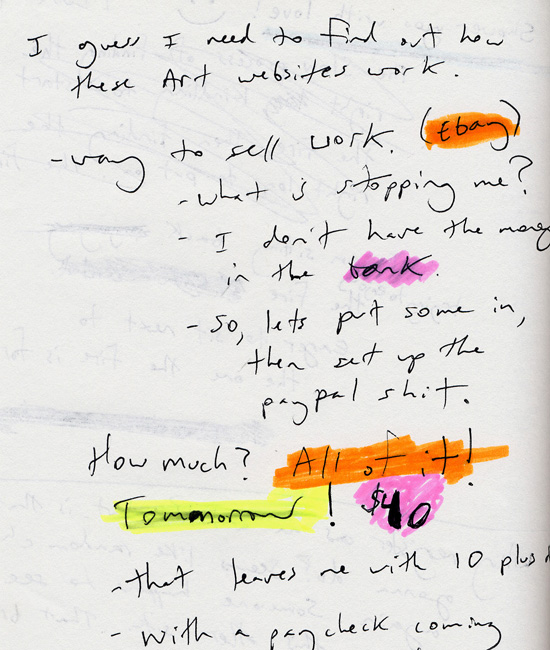 I guess I need to find out how
these Art websites work.
-way to sell work. (Ebay)
-what is stopping me?
- I don't have the money
in the bank.
- So, lets put some in,
then set up the
paypal shit.
How much? All of it!
Tomorrow! $40
-that leaves me with 10 plus
- with a paycheck coming